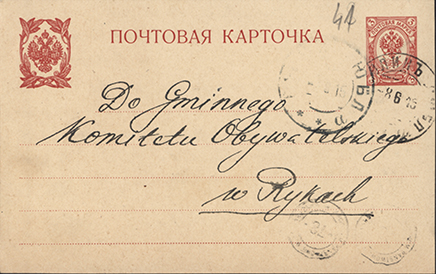 41
ПОЧТОВАЯ КАРТОЧКА
Do Gminnego
Komitetu Obywatelskiego
w Rykach